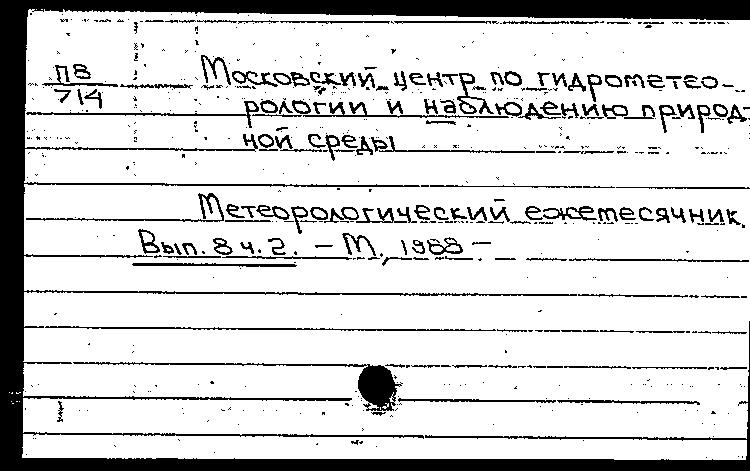 П8
714
Московский центр по гидрометео-
рологии и наблюдению природ-
ной среды
Метеорологический ежемесячник.
Вып. 8 ч. 2. – М., 1988 –